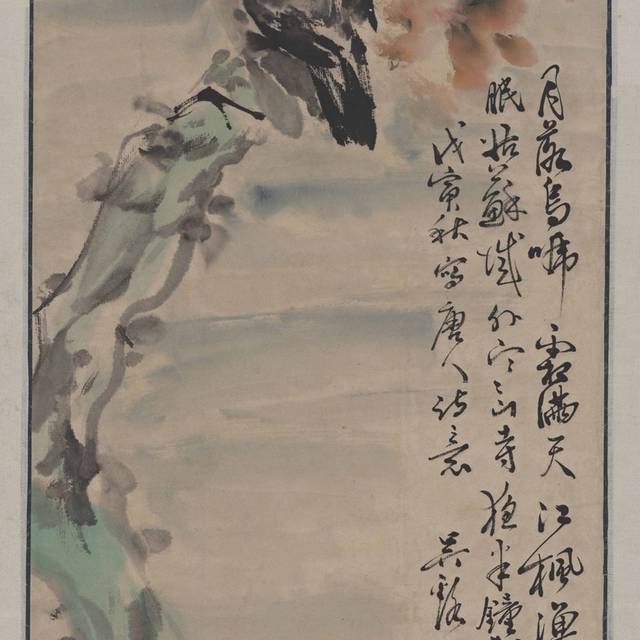 月落烏啼霜滿天江楓漁
眠姑蘇城外寒山寺夜半鐘
戊寅秋寫唐人詩意 吳